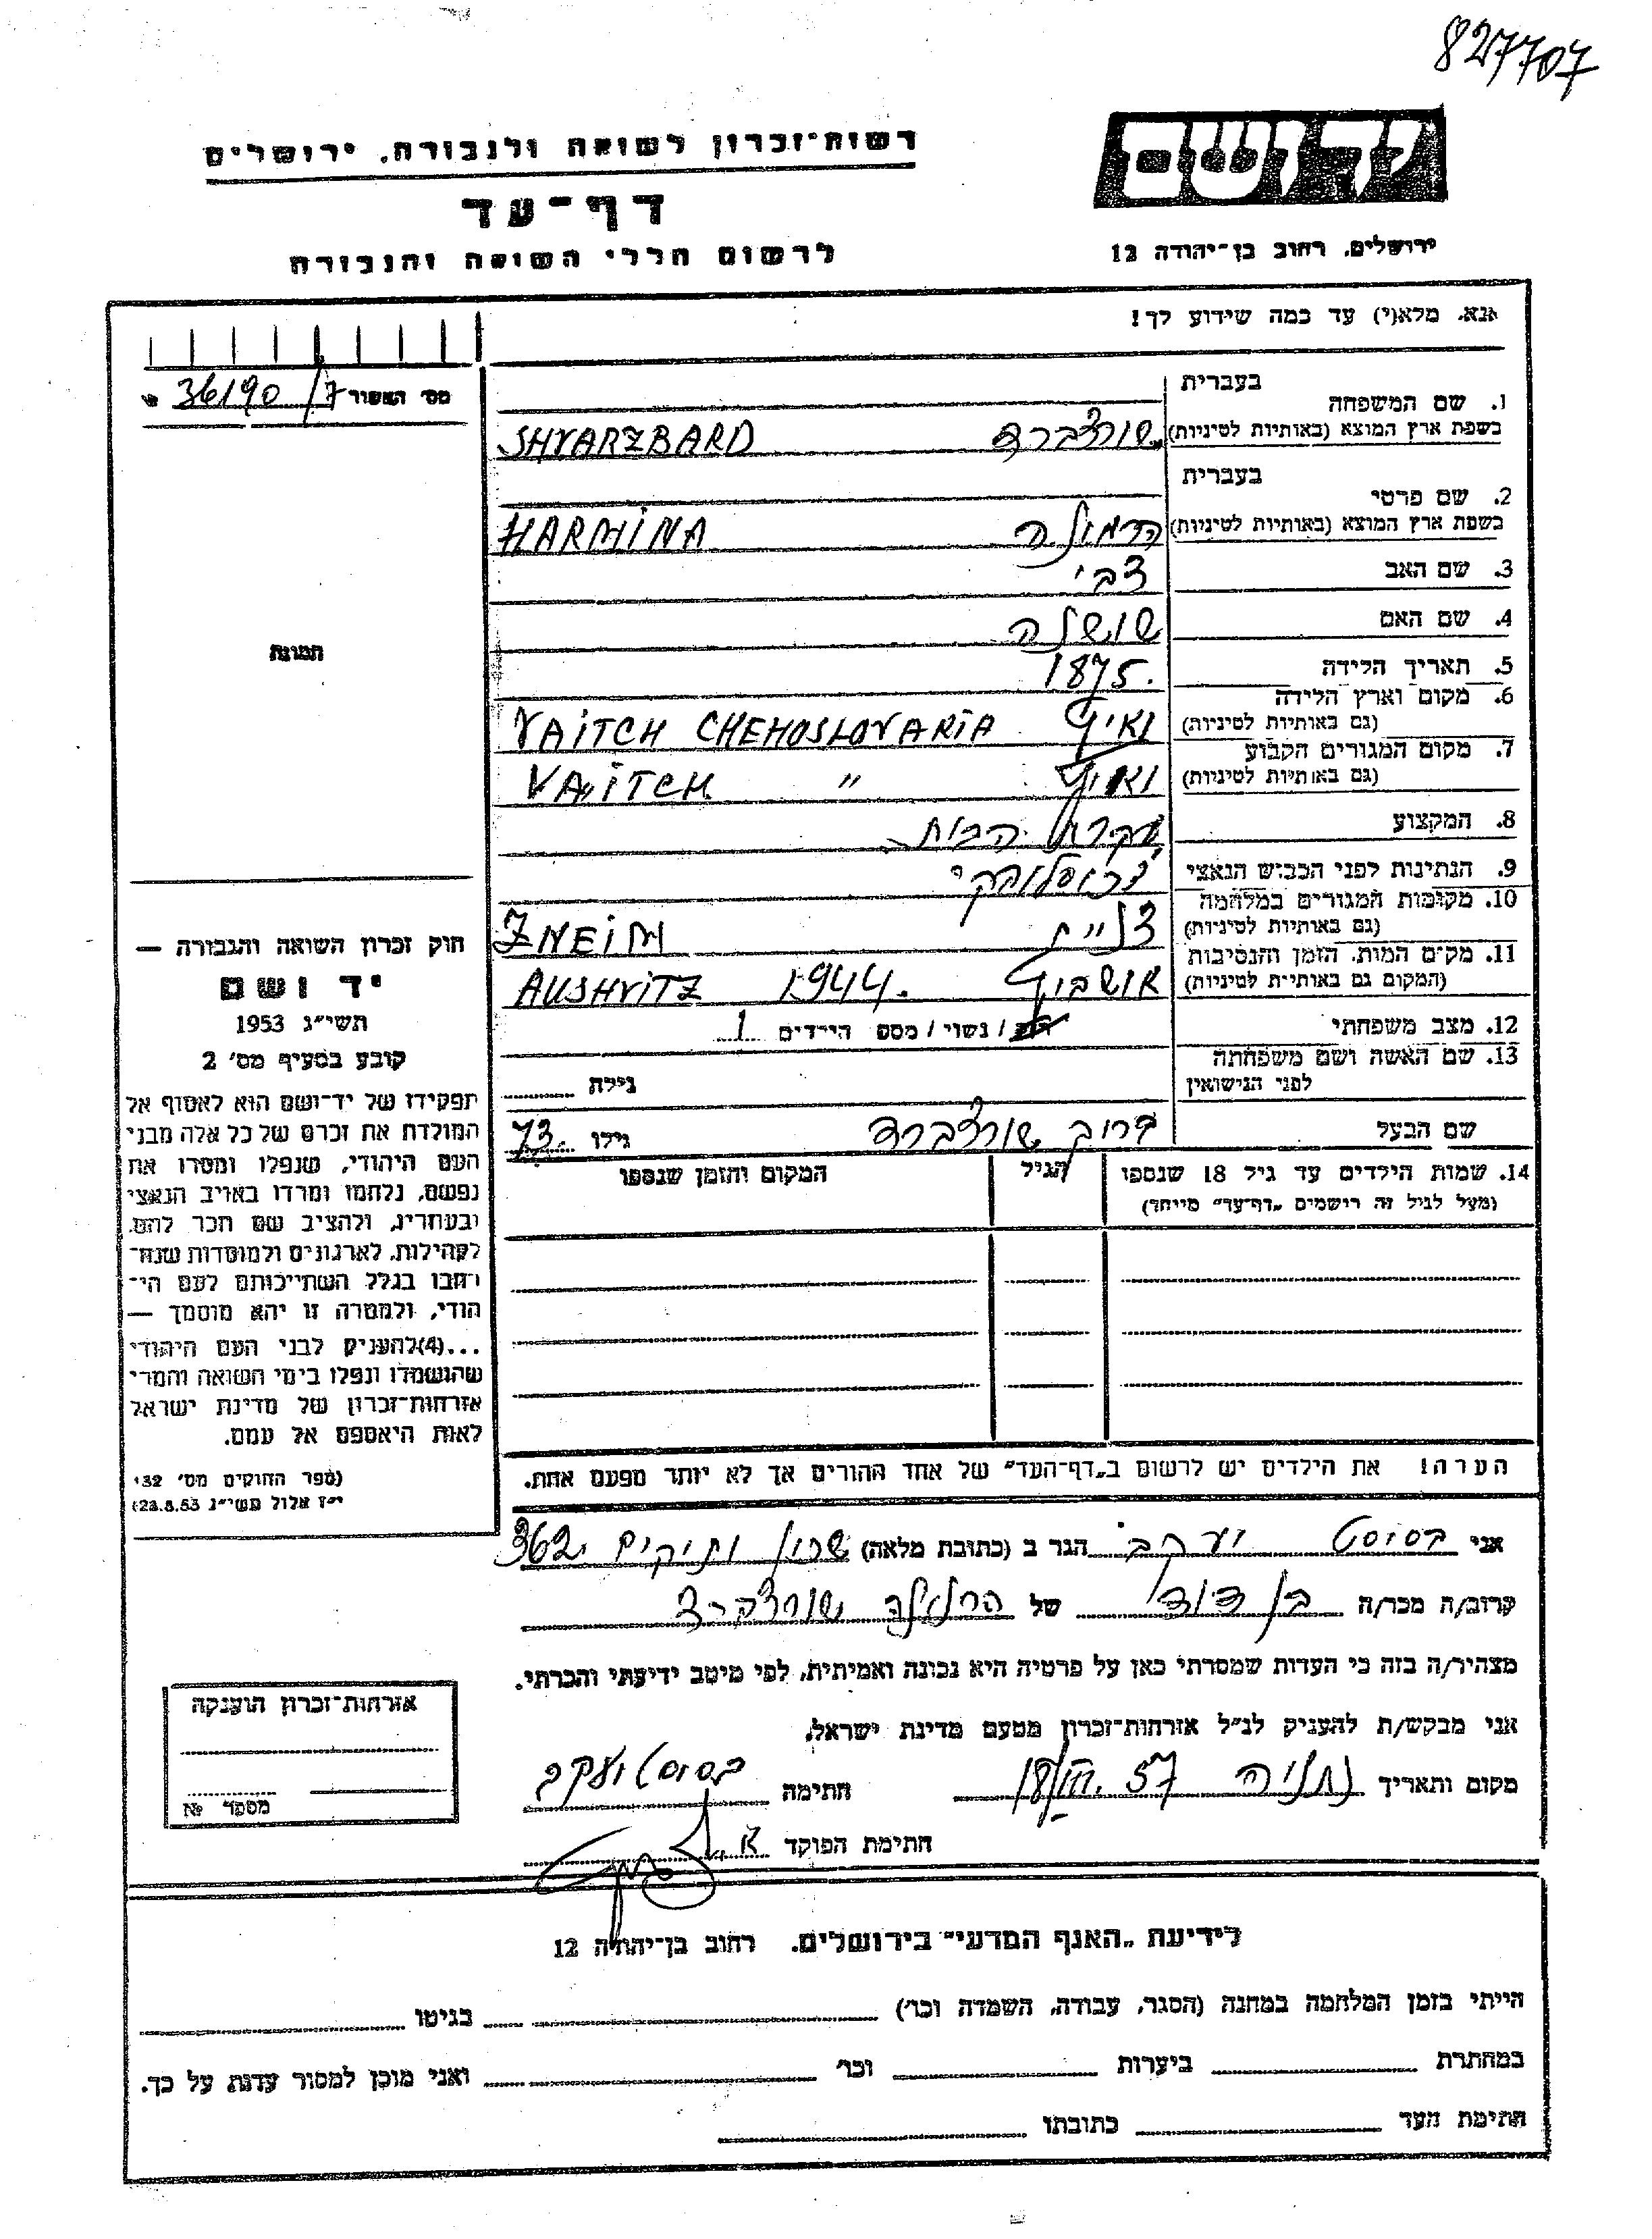 827707
יד ושם
ירושלים, רחוב בן-יהודה 12
רשות-זכרון לשואה ולגבורה, ירושלים
דף-עד
לרשום חללי השואה והגבורה
אנא, מלא(י) עד כמה שידוע לך!
מס' האשור 36190/7
תמונה
1. שם המשפחה בעברית
בשפת ארץ המוצא (באותיות לטיניות) שורצברד SHVARZBARD
2. שם פרטי בעברית
בשפת ארץ המוצא (באותיות לטיניות) הרמינה HARMINA
3. שם האב צבי
4. שם האם שושנה
5. תאריך הלידה 1875.
6. מקום וארץ הלידה
(גם באותיות לטיניות) ואיץ VAITCH CHEHOSLOVAKIA
7. מקום המגורים הקבוע
(גם באותיות לטיניות) ואיץ VAITCH "
8. המקצוע עקרת הבית
9. הנתינות לפני הכבוש הנאצי
10. מקומות המגורים במלחמה
(גם באותיות לטיניות) צניים ZNEIM
11. מקום המות, הזמן והנסיבות
(המקום גם באותיות לטיניות) אושביץ AUSHVITZ 1944.
12. מצב משפחתי רוק / נשוי / מספ הילדים 1
13. שם האשה ושם משפחתה
לפני הנישואין גילה
שם הבעל שורצברד גילו 73.
14. שמות הילדים עד גיל 18 שנספו הגיל המקום והזמן שנספו
(מעל לגיל זה רישמים "דף-עד" מייחד)
הערה! את הילדים יש לרשום ב"דף-העד" של אחד ההורים אך לא יותר מפעם אחת.
חוק זכרון השואה והגבורה —
יד ושם
תשי"ג 1953
קובע בסעיף מס' 2
תפקידו של יד-ושם הוא לאסוף אל
המולדת את זכרם של כל אלה מבני
העם היהודי, שנפלו ומסרו את
נפשם, נלחמו ומרדו באויב הנאצי
ובעוזריו, ולהציב שם וזכר להם,
לקהילות, לארגונים ולמוסדות שנח-
רבו בגלל השתייכותם לעם הי-
הודי, ולמטרה זו יהא מוסמך —
...(4)להעניק לבני העם היהודי
שהושמדו ונפלו בימי השואה והמרי
אזרחות-זכרון של מדינת ישראל
לאות היאספם אל עמם.
(ספר החוקים מס' 132
י"ז אלול תשי"ג 28.8.53)
אני בסוסט יעקב הגר ב (כתובת מלאה) שכון ותיקים 362
קרוב/ה מכר/ה בן דוד של הרמינה שורצברד
מצהיר/ה בזה כי העדות שמסרתי כאן על פרטיה היא נכונה ואמיתית, לפי מיטב ידיעתי והכרתי.
אני מבקש/ת להעניק לנ"ל אזרחות-זכרון מטעם מדינת ישראל.
מקום ותאריך נתניה חתימה בסוסט יעקב
חתימת הפוקד
אזרחות-זכרון הוענקה
מספר №
לידיעת "האגף המדעי" בירושלים, רחוב בן-יהודה 12
הייתי בזמן המלחמה במחנה (הסגר, עבודה, השמדה וכו') בגיטו
במחתרת ביערות וכו' ואני מוכן למסור עדות על כך.
חתימת העד כתובתו